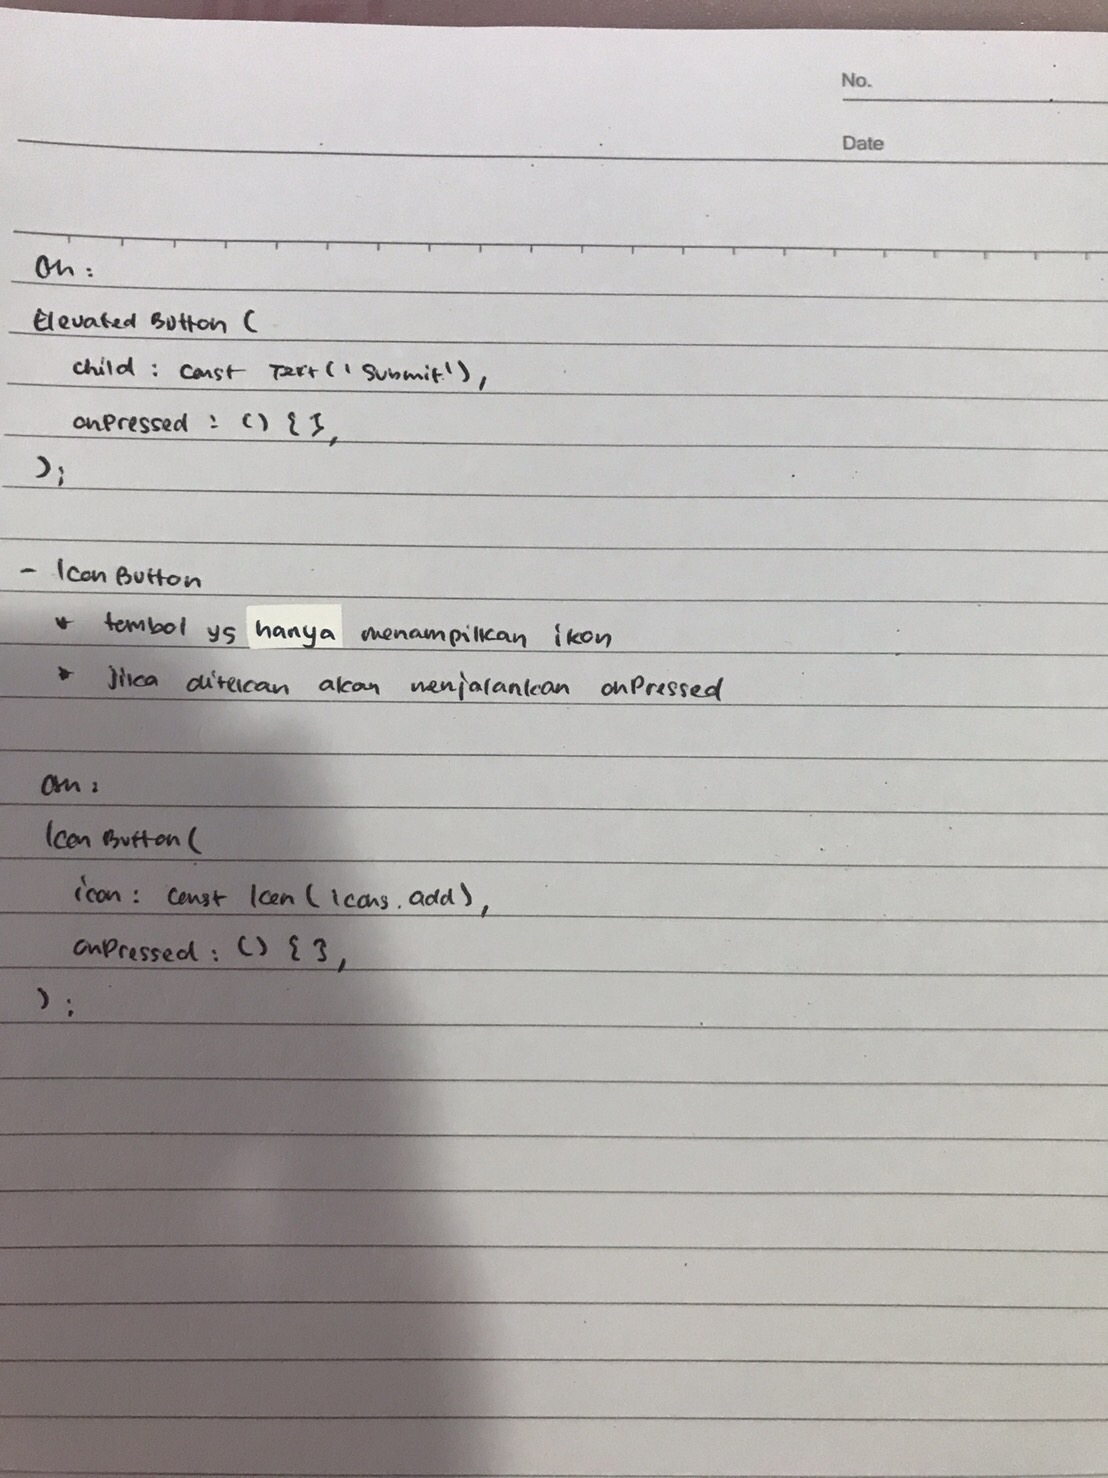 No.
Date
Cth:
Elevated Button (
child : const Text ( ' Submit ' ) ,
onPressed : ( ) { } ,
) ;
- Icon Button
* tombol yg hanya menampilkan ikon
* jika ditekan akan menjalankan onPressed
Cth :
Icon Button (
icon : const Icon ( Icons . add ) ,
onPressed : ( ) { } ,
) ;